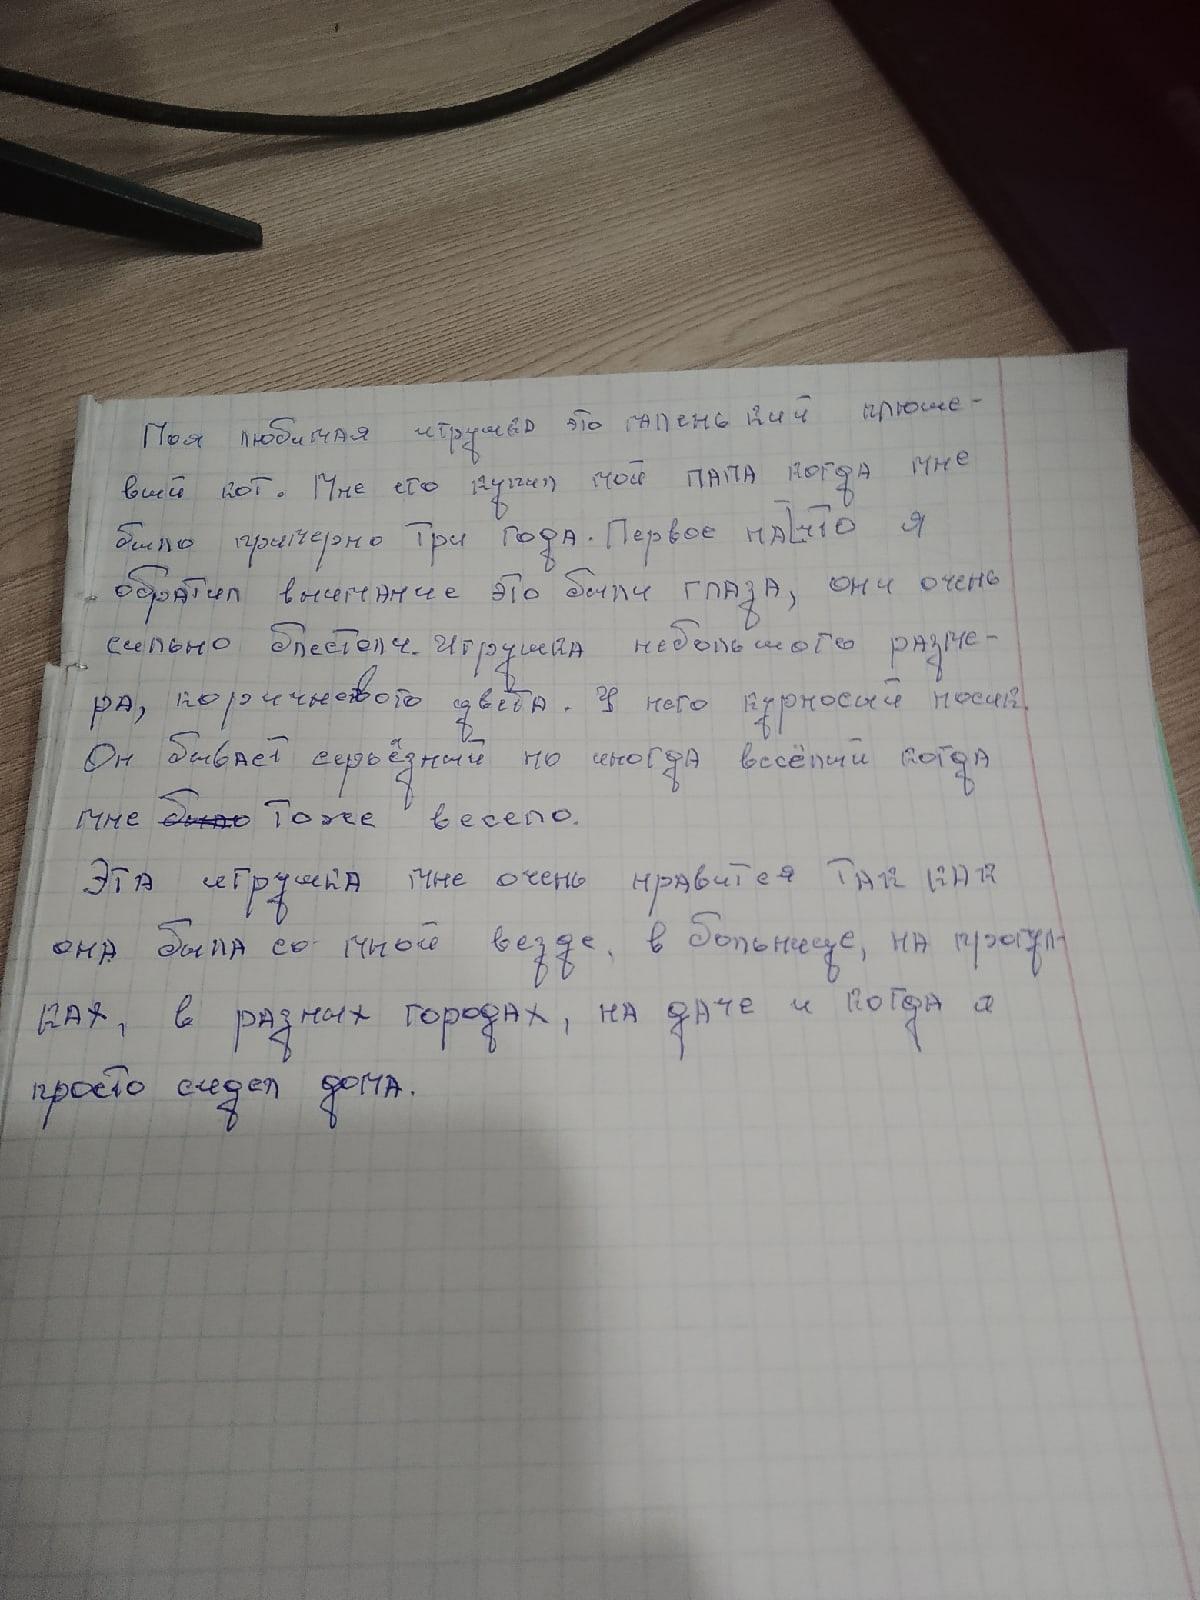 Моя любимая игрушка это маленький плюше-
вый кот. Мне его купил мой папа когда мне
было примерно три года. Первое на что я
обратил внимание это были глаза, они очень
сильно блестели. Игрушка небольшого разме-
ра, коричневого цвета. У него курносый носик.
Он бывает серьёзный но иногда весёлый когда
мне было тоже весело.
Эта игрушка мне очень нравится так как
она была со мной везде, в больнице, на прогул-
ках, в разных городах, на даче и когда я
просто сидел дома.